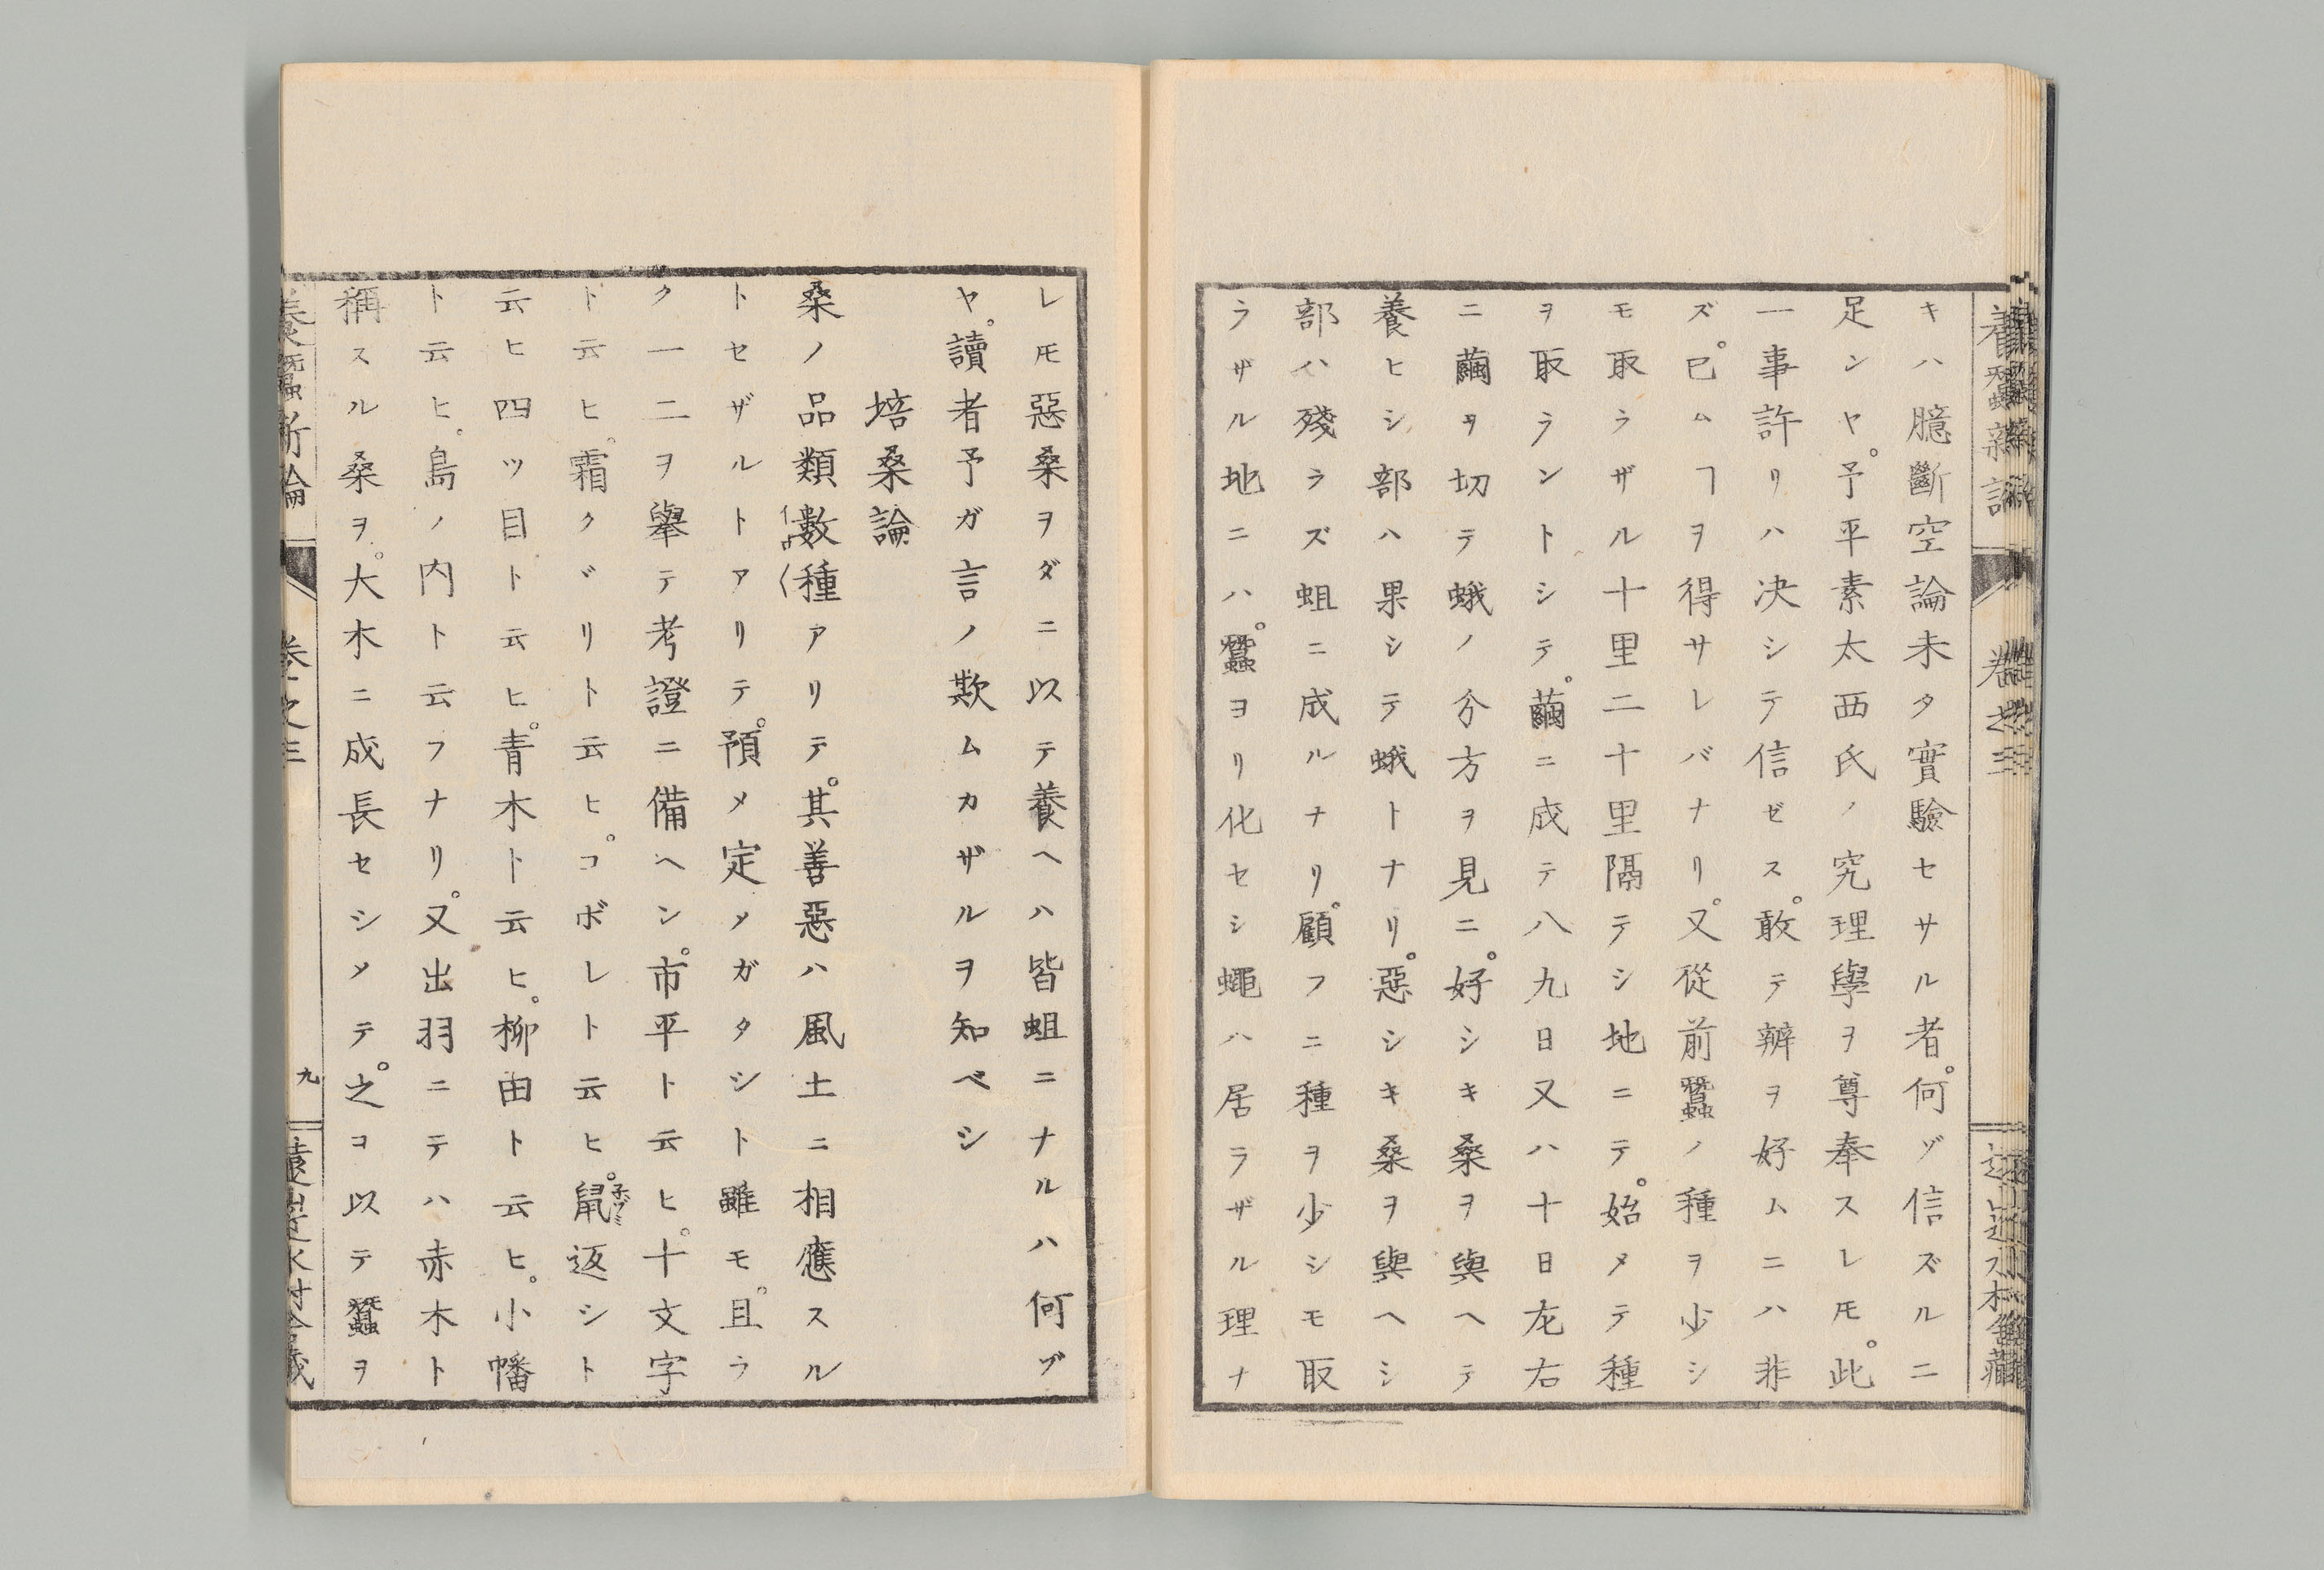 キハ臆斷空論未タ實驗セサル者。何ゾ信ズルニ
足シヤ。予平素太西氏ノ究理學ヲ尊奉スレ𪜈。此
一事許リハ決シテ信ゼス。敢テ辨ヲ好ムニハ非
ズ。已ムヿヲ得サレバナリ。又從前蠶ノ種ヲ少シ
モ取ラザル十里二十里隔テシ地ニテ。始メテ種
ヲ取ラントシテ。繭ニ成テ八九日又ハ十日左右
ニ繭ヲ切テ蛾ノ分方ヲ見ニ。好シキ桑ヲ與ヘテ
養ヒシ部ハ果シテ蛾トナリ。惡シキ桑ヲ與ヘシ
部ハ殘ラズ蛆ニ成ルナリ。顧フニ種ヲ少シモ取
ラザル地ニハ。蠶ヨリ化セシ蠅ハ居ラザル理ナ
レ𪜈惡桑ヲダニ以テ養ヘハ皆蛆ニナルハ何ゾ
ヤ。讀者予ガ言ノ欺ムカザルヲ知ベシ
培桑論
桑ノ品類數種アリテ。其善惡ハ風土ニ相應スル
トセザルトアリテ。預メ定メガタシト雖モ。且ラ
ク一二ヲ擧テ考證ニ備ヘン。市平ト云ヒ。十文字
ト云ヒ。霜クヾリト云ヒ。コボレト云ヒ。鼠返シト
云ヒ四ツ目ト云ヒ。青木ト云ヒ。柳田ト云ヒ。小幡
ト云ヒ。島ノ内ト云フナリ。又出羽ニテハ赤木ト
稱スル桑ヲ。大木ニ成長セシメテ。之コ以テ蠶ヲ
養蠶新論
卷之三
九